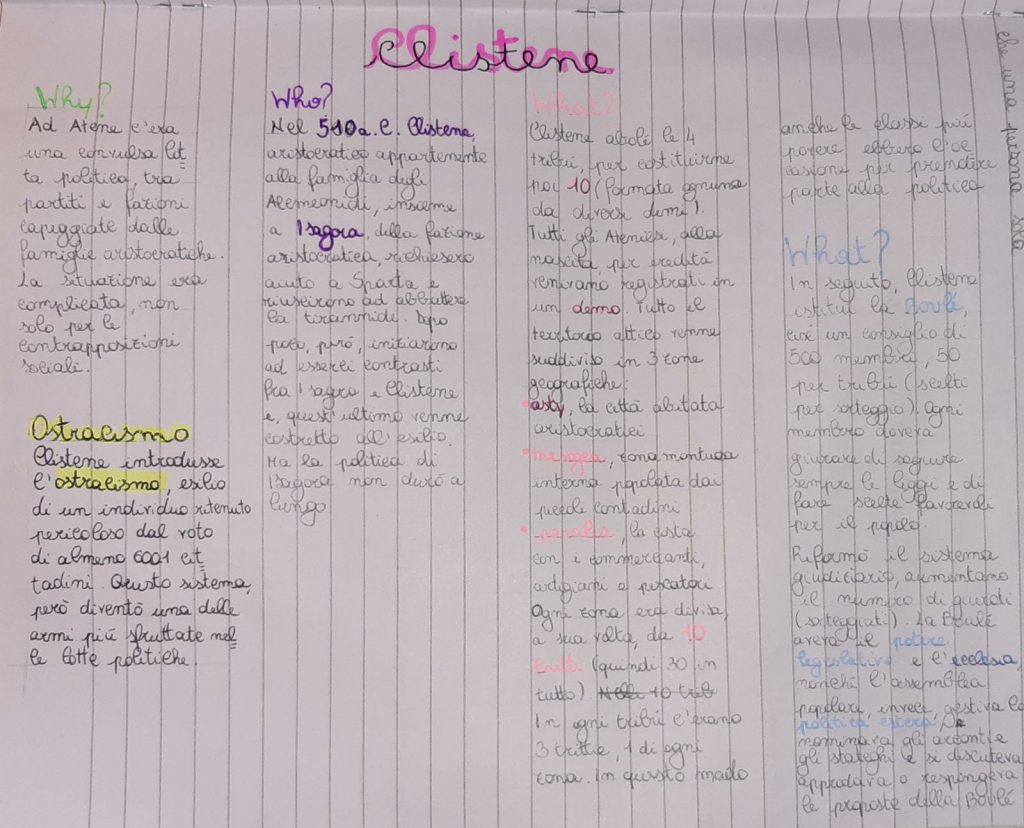 Clistene
Why?
Ad Atene c'era
una convulsa lit
ta politica, tra
partiti e fazioni
capeggiate dalle
famiglie aristocratiche.
La situazione era
complicata, non
solo per le
contrapposizioni
sociali.
Ostracismo
Clistene introdusse
l'ostracismo, esilio
di un individuo ritenuto
pericoloso dal voto
di almeno 6001 cit
tadini. Questo sistema,
però diventò una delle
armi più sfruttate nel
le lotte politiche.
Who?
Nel 510 a.C. Clistene,
aristocratico appartenente
alla famiglia degli
Alcmeonidi, insieme
a Isagora, della fazione
aristocratica, richiesero
aiuto a Sparta e
riuscirono ad abbattere
la tirannide. Dopo
poco, però, iniziarono
ad esserci contrasti
fra Isagora e Clistene
e, quest'ultimo venne
costretto all'esilio.
Ma la politica di
Isagora non durò a
lungo
What?
Clistene abolì le 4
tribù, per costituirne
poi 10 (formata ognuna
da diversi demi).
Tutti gli Ateniesi, alla
nascita per eredità
venivano registrati in
un demo. Tutto il
territorio attico venne
suddiviso in 3 zone
geografiche:
• asty, la città abitata
aristocratici
• mesogea, zona montuosa
interna popolata dai
piccoli contadini
• paralia, la costa
con i commercianti,
artigiani e pescatori
Ogni zona era divisa,
a sua volta, da 10
tritti (quindi 30 in
tutto). Nelle 10 trib
In ogni tribù c'erano
3 trittie, 1 di ogni
zona. In questo modo
anche le classi più
povere ebbero l'oc
casione per prendere
parte alla politica
What?
In seguito, Clistene
istituì la Boulé,
cioè un consiglio di
500 membri, 50
per tribù (scelti
per sorteggio). Ogni
membro doveva
giurare di seguire
sempre le leggi e di
fare scelte favorevoli
per il popolo.
Riformò il sistema
giudiziario, aumentano
il numero di giurati
(sorteggiati). La Boulé
aveva il potere
legislativo e l'ecclesia,
nonché l'assemblea
popolare, invece, gestiva la
politica estera,
nominava gli arconti e
gli stateghi e si discuteva
approvava o respingeva
le proposte della Boulé
che una persona sola